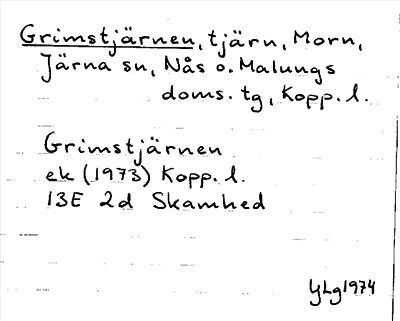 Grimstjärnen, tjärn, Morn,
Järna sn, Nås o. Malungs
doms. tg, Kopp. l.
Grimstjärnen
ek (1973) Kopp. l.
13E 2d Skamhed
YLg 1974